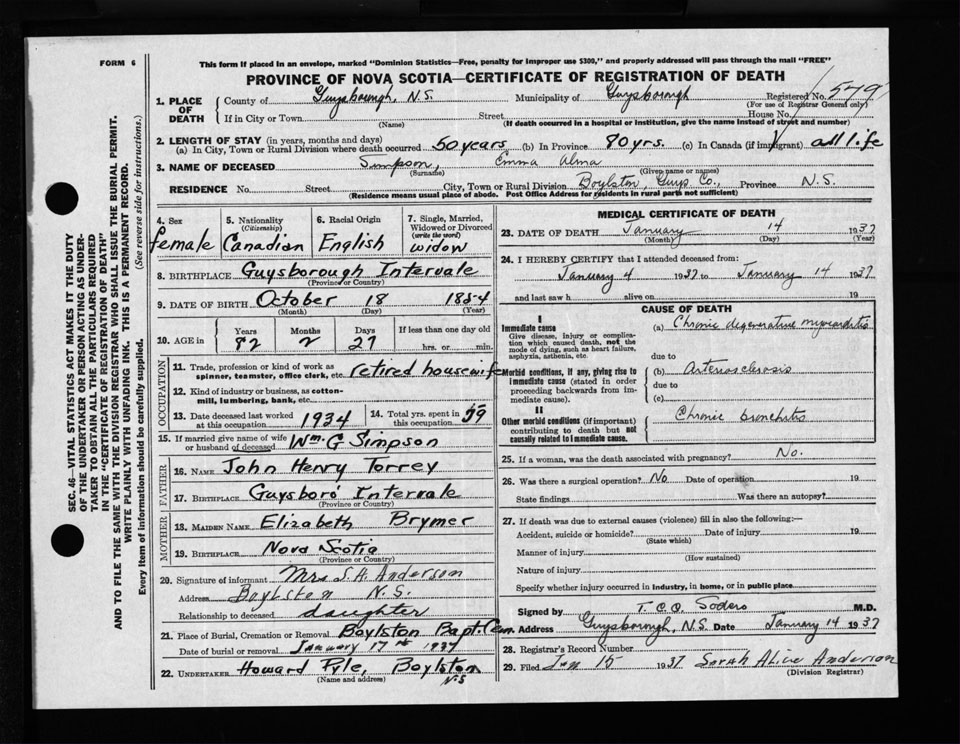 FORM 6
This form if placed in an envelope, marked "Dominion Statistics—Free, penalty for improper use $300," and properly addressed will pass through the mail "FREE"
PROVINCE OF NOVA SCOTIA—CERTIFICATE OF REGISTRATION OF DEATH
SEC. 46—VITAL STATISTICS ACT MAKES IT THE DUTY
OF THE UNDERTAKER OR PERSON ACTING AS UNDER-
TAKER TO OBTAIN ALL THE PARTICULARS REQUIRED
IN THE "CERTIFICATE OF REGISTRATION OF DEATH"
AND TO FILE THE SAME WITH THE DIVISION REGISTRAR WHO SHALL ISSUE THE BURIAL PERMIT.
WRITE PLAINLY WITH UNFADING INK. THIS IS A PERMANENT RECORD.
Every item of information should be carefully supplied. (See reverse side for instructions.)
1. PLACE OF DEATH
County of Guysborough, N.S. Municipality of Guysborough Registered No. 579
(For use of Registrar General only)
If in City or Town Street House No.
(Name) (If death occurred in a hospital or institution, give the name instead of street and number)
2. LENGTH OF STAY (in years, months and days)
(a) In City, Town or Rural Division where death occurred 50 years (b) In Province 80 yrs. (c) In Canada (if immigrant) all life
3. NAME OF DECEASED Simpson, Emma Alma
(Surname) (Given name or names)
RESIDENCE No. Street City, Town or Rural Division Boylston, Guys Co., Province N.S.
(Residence means usual place of abode. Post Office Address for residents in rural parts not sufficient)
4. Sex female
5. Nationality (Citizenship) Canadian
6. Racial Origin English
7. Single, Married, Widowed or Divorced (write the word) widow
8. BIRTHPLACE Guysborough Intervale
(Province or Country)
9. DATE OF BIRTH October 18 1854
(Month) (Day) (Year)
10. AGE in Years 82 Months 2 Days 27 If less than one day old hrs. or min.
OCCUPATION
11. Trade, profession or kind of work as spinner, teamster, office clerk, etc. retired housewife
12. Kind of industry or business, as cotton-mill, lumbering, bank, etc.
13. Date deceased last worked at this occupation 1934 14. Total yrs. spent in this occupation 59
15. If married give name of wife or husband of deceased Wm. G Simpson
FATHER
16. NAME John Henry Torrey
17. BIRTHPLACE Guysboro Intervale
(Province or Country)
MOTHER
18. MAIDEN NAME Elizabeth Brymer
19. BIRTHPLACE Nova Scotia
(Province or Country)
20. Signature of informant Mrs S. H. Anderson
Address Boylston N.S.
Relationship to deceased daughter
21. Place of Burial, Cremation or Removal Boylston Bapt. Cem.
Date of burial or removal January 17th 1937
22. UNDERTAKER Howard Pyle, Boylston N.S
(Name and address)
MEDICAL CERTIFICATE OF DEATH
23. DATE OF DEATH January 14 1937
(Month) (Day) (Year)
24. I HEREBY CERTIFY that I attended deceased from:
January 4 1937 to January 14 1937
and last saw h alive on 19
CAUSE OF DEATH
I
Immediate cause
Give disease, injury or complication which caused death, not the mode of dying, such as heart failure, asphyxia, asthenia, etc.
(a) Chronic degenerative myocarditis
due to
Morbid conditions, if any, giving rise to immediate cause (stated in order proceeding backwards from immediate cause).
(b) Arteriosclerosis
due to
(c)
II
Other morbid conditions (if important) contributing to death but not causally related to immediate cause.
Chronic bronchitis
25. If a woman, was the death associated with pregnancy? No.
26. Was there a surgical operation? No Date of operation 19
State findings Was there an autopsy?
27. If death was due to external causes (violence) fill in also the following:—
Accident, suicide or homicide? Date of injury 19
(State which)
Manner of injury
(How sustained)
Nature of injury
Specify whether injury occurred in industry, in home, or in public place
Signed by T. C. C. Sodero M.D.
Address Guysborough, N.S. Date January 14 1937
28. Registrar's Record Number
29. Filed Jan 15 1937 Sarah Alice Anderson
(Division Registrar)